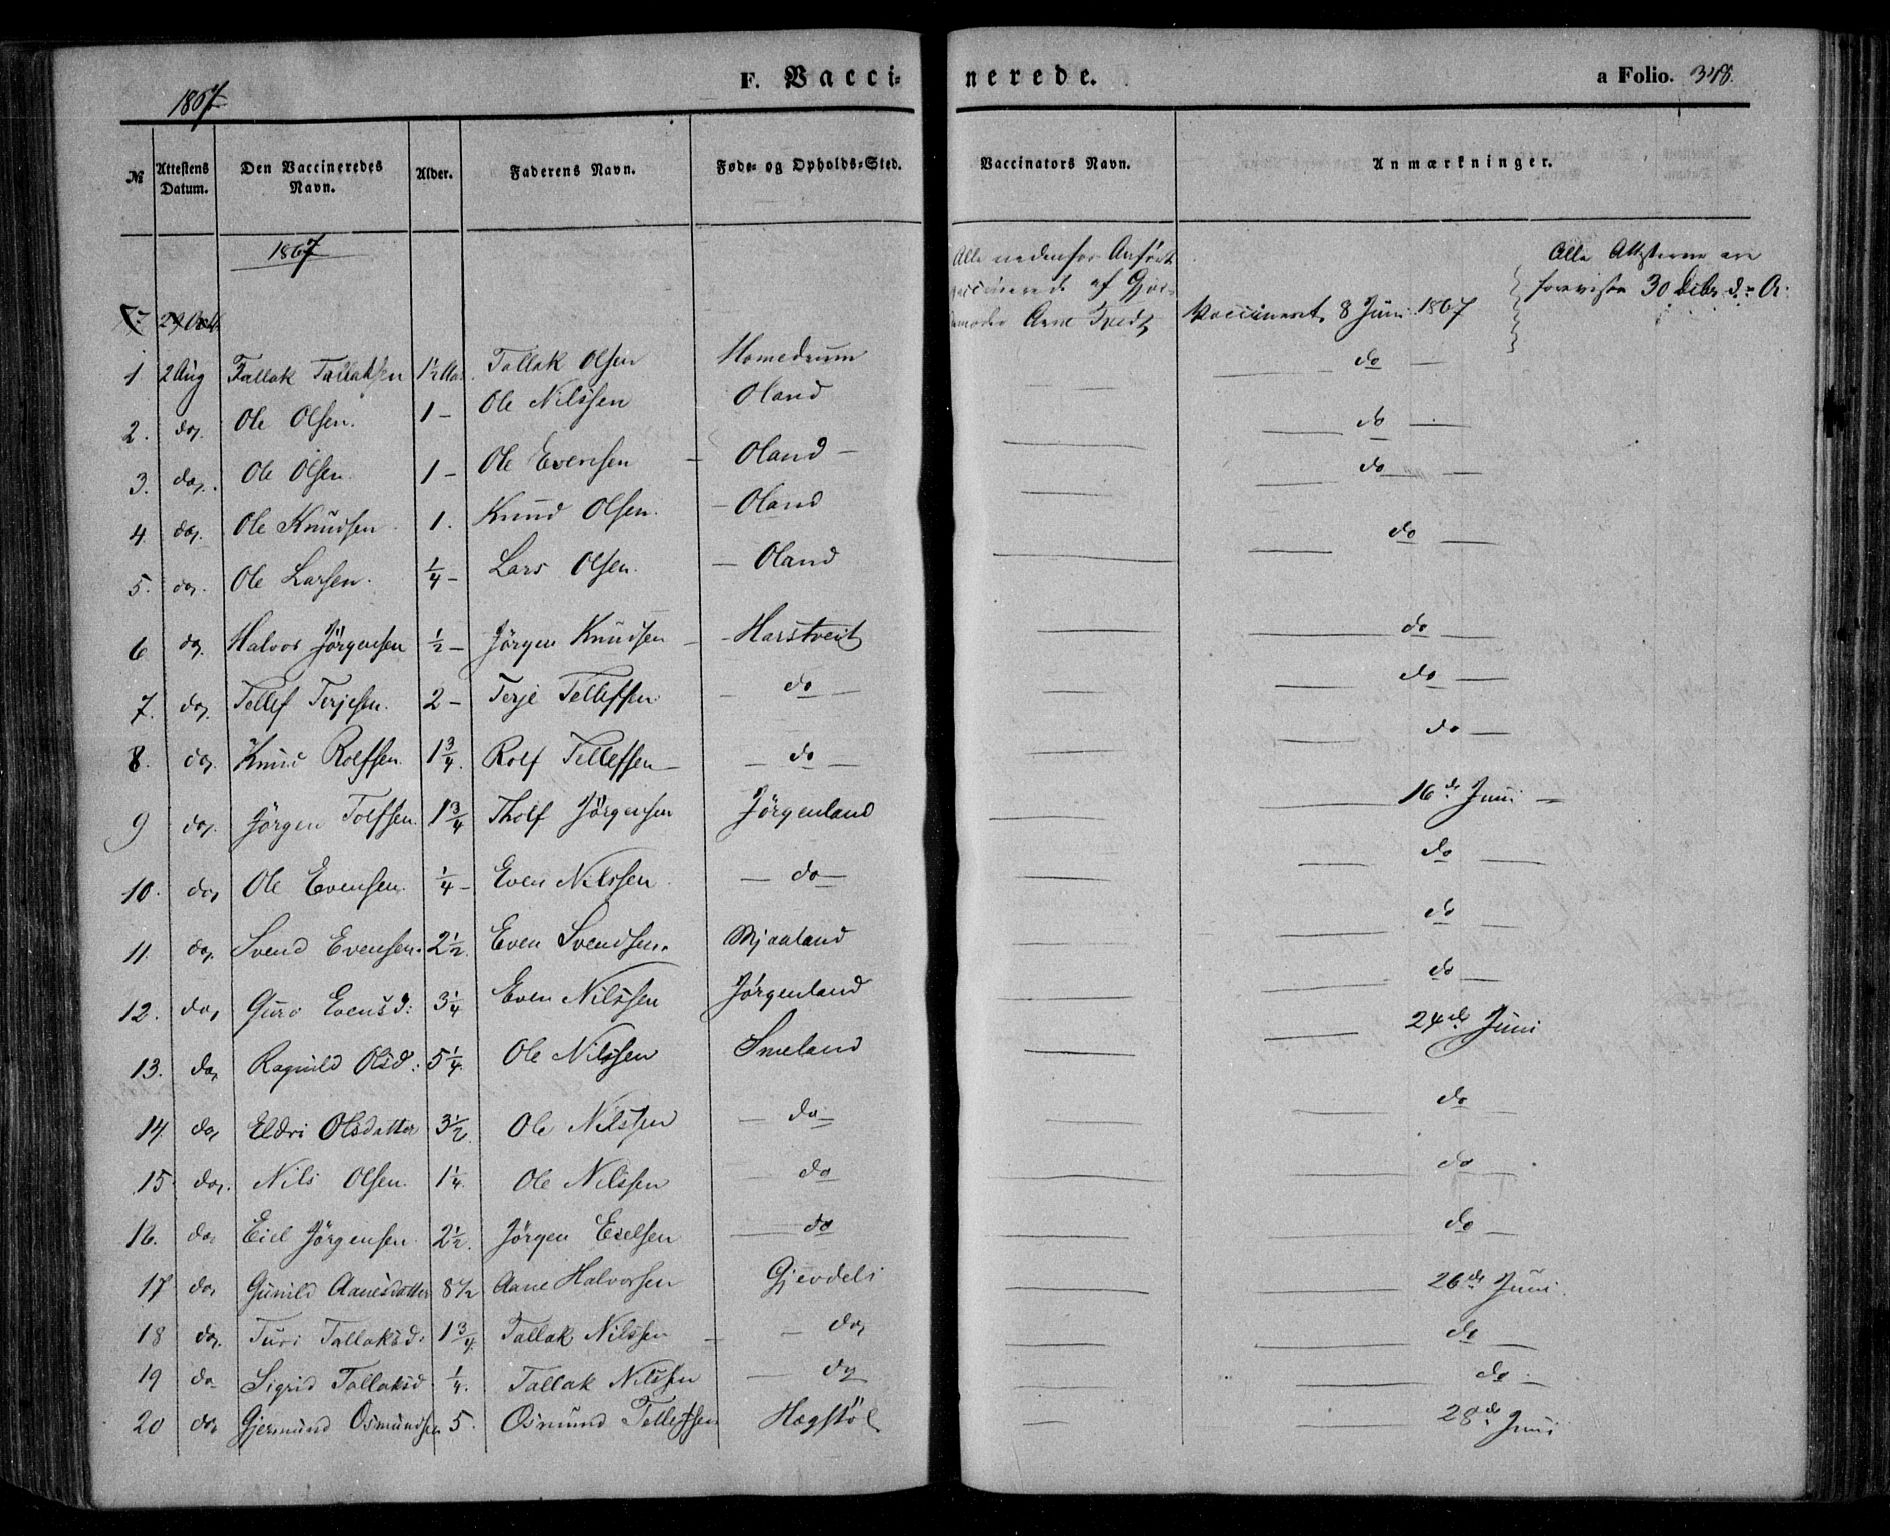 1867
F. Vacci-
nerede.
a Folio. 348.
№
Attestens Datum.
Den Vaccineredes Navn.
Alder.
Faderens Navn.
Føde- og Opholds-Sted.
Vaccinators Navn.
Anmærkninger.
1867
Alle nedenfor Anført
vaccinerede af Gjor-
demoder Anne Tvedt
Vaccineret 8 Juni 1867
Alle Attesterne ere
foreviste 30 Decbr d: A:
1. 2 Aug Tallak Tallaksen 1½ Aar. Tallak Olsen Homedrum do
2. do. Ole Olsen. 1 - Ole Nilssen Oland do
3. do. Ole Olsen. 1 - Ole Evensen - Oland - do
4. do. Ole Knudsen 1. Knud Olsen. - Oland do
5. do. Ole Larsen. ¼ - Lars Olsen. - Oland
6 do. Halvor Jørgensen ½ - Jørgen Knudsen - Harstveit do
7. do. Tellef Terjesen. 2 - Terje Tellefsen - do - do
8. do. Knud Rolfsen. 1¾. Rolf Tellefsen - do - do
9 do. Jørgen Tolfsen. 1¾ Tholf Jørgensen Jørgenland 16de Juni
10. do. Ole Evensen. ¼ - Even Nilssen - do - do
11. do. Svend Evensen. 2½. Even Svendsen. Mjaaland do
12. do. Guro Evensd: 3¼ Even Nilssen Jørgenland do
13. do. Ragnild Olsd: 5¼. Ole Nilssen Smeland 24de Juni
14. do. Eldri Olsdatter 3½. Ole Nilssen - do - do
15 do. Nils Olsen. 1¼. Ole Nilssen - do do
16. do. Eiel Jørgensen. 2½. Jørgen Eielsen - do do
17 do. Gunild Aanesdatter 8½ Aane Halvorsen Gjevdeli 26de Juni.
18 do. Turi Tallaksd: 1¾. Tallak Nilssen - do. do
19 do Sigrid Tallaksd. ¼. Tallak Nilssen - do do
20 do. Gjermund Osmundsen 5. Osmund Tellefsen Hægstøl 28de Juni